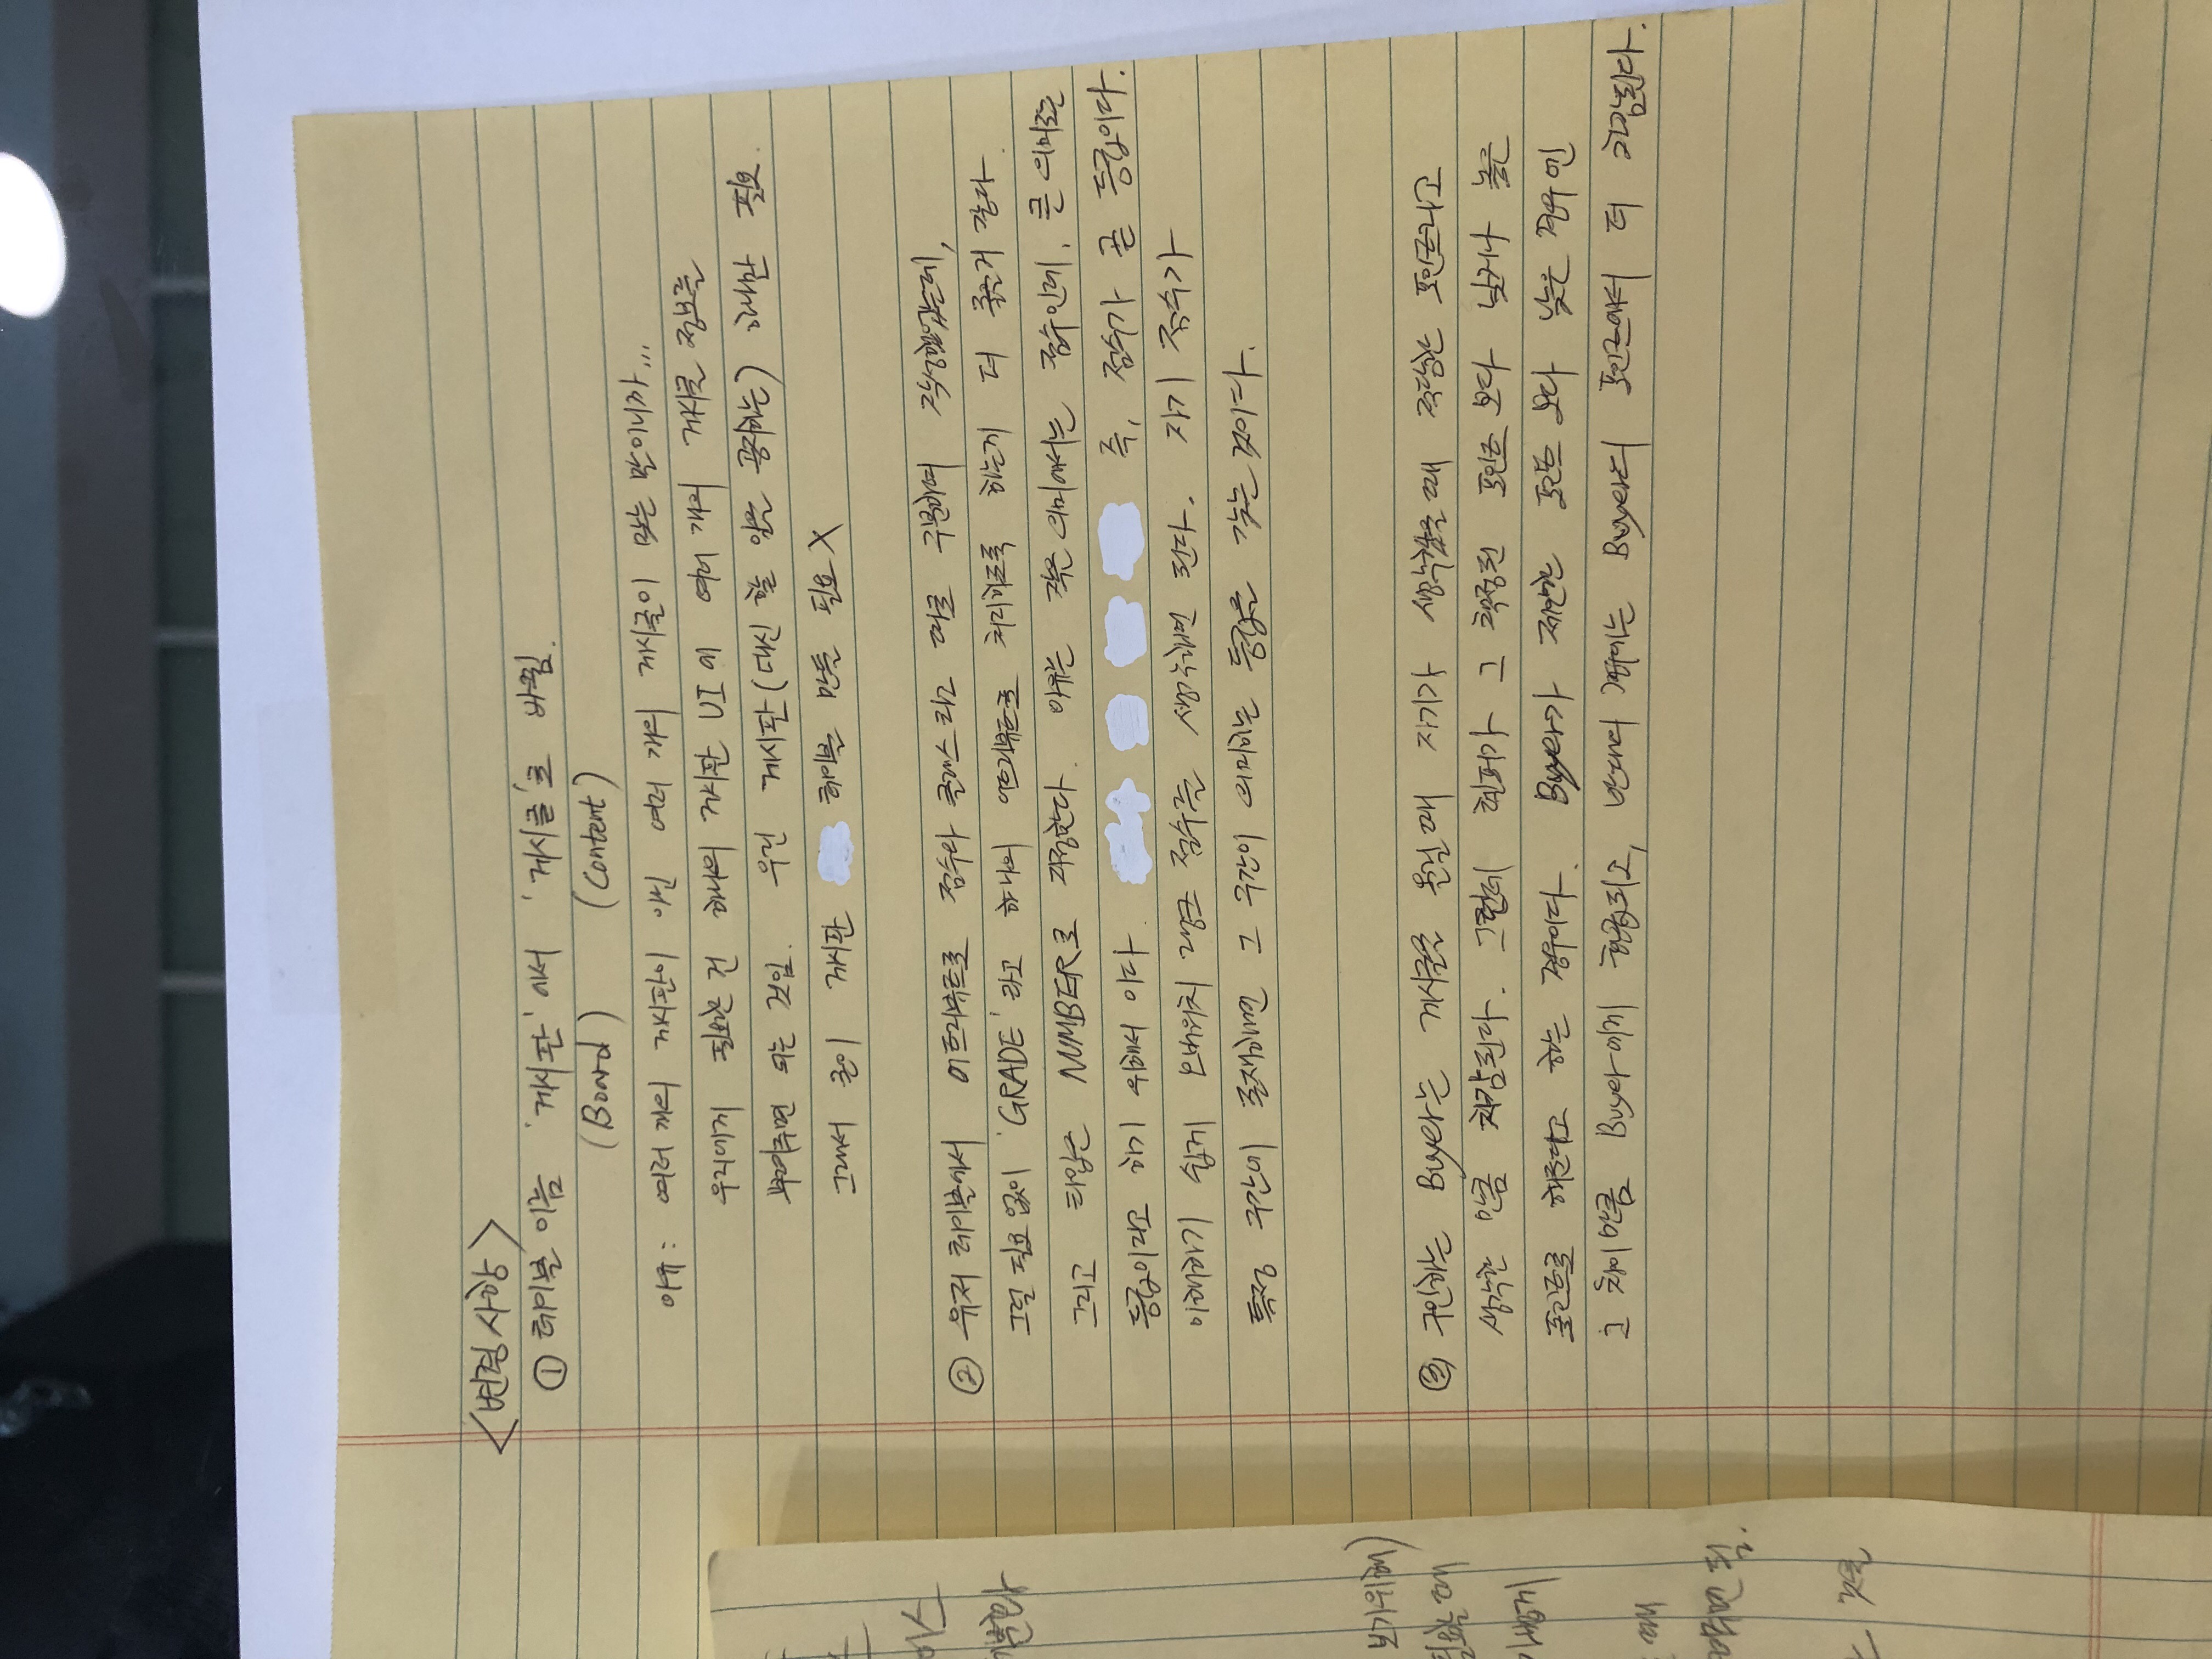 <변경사항>
① 테이블 이름 '게시판'에서 '게시글'로 바뀜.
(Board) (Content)
이유: 여러 개의 게시판이 아닌 여러 개의 게시글이 맞는 말이니까...
우리에게 필요한 건 하나의 게시판 UI에 여러 개의 게시글 정보를
보여주면 되는 것임. 우린 게시판(대신 할 일을 공지하는) 하나만 필요.
그래서 굳이 게시판 테이블 만들 필요 X
② 유저 테이블에서 어트리뷰트로 점수와 클래스라고 따로 구분하여 작성했었는데,
그럴 필요없이 'GRADE'라고 하나의 어트리뷰트로 처리하도록 하는게 더 좋은거 같다.
그리고 타입은 NUMBER로 지정한다. 이유는 작은 의미에서는 점수인데, 큰 의미로는
등급이라고 하기 위해서 이다. 즉, 점수가 곧 등급이다.
이해하기 쉽게 오버워치 랭크 점수를 생각하면 된다. 자기 점수가
특정 구간에 존재하면 그 구간이 의미하는 등급을 갖는 것이다.
③ 구인하는 Buyer는 게시글을 올릴 때 자기가 생각했을 때 적당한 포인트라고
생각한 만큼 차감된다. 그런데 헬퍼가 그 책정된 포인트 보다 낮거나 높은
포인트로 해준다고 하는 경우이다. Buyer가 제안한 포인트 보다 낮은 경우엔
그 차이만큼 Buyer에게 환급되고, 반대의 경우에는 Buyer의 포인트에서 더 차감된다.
이스
보기위해)
필요할 때
때
여주면 됨.
것을